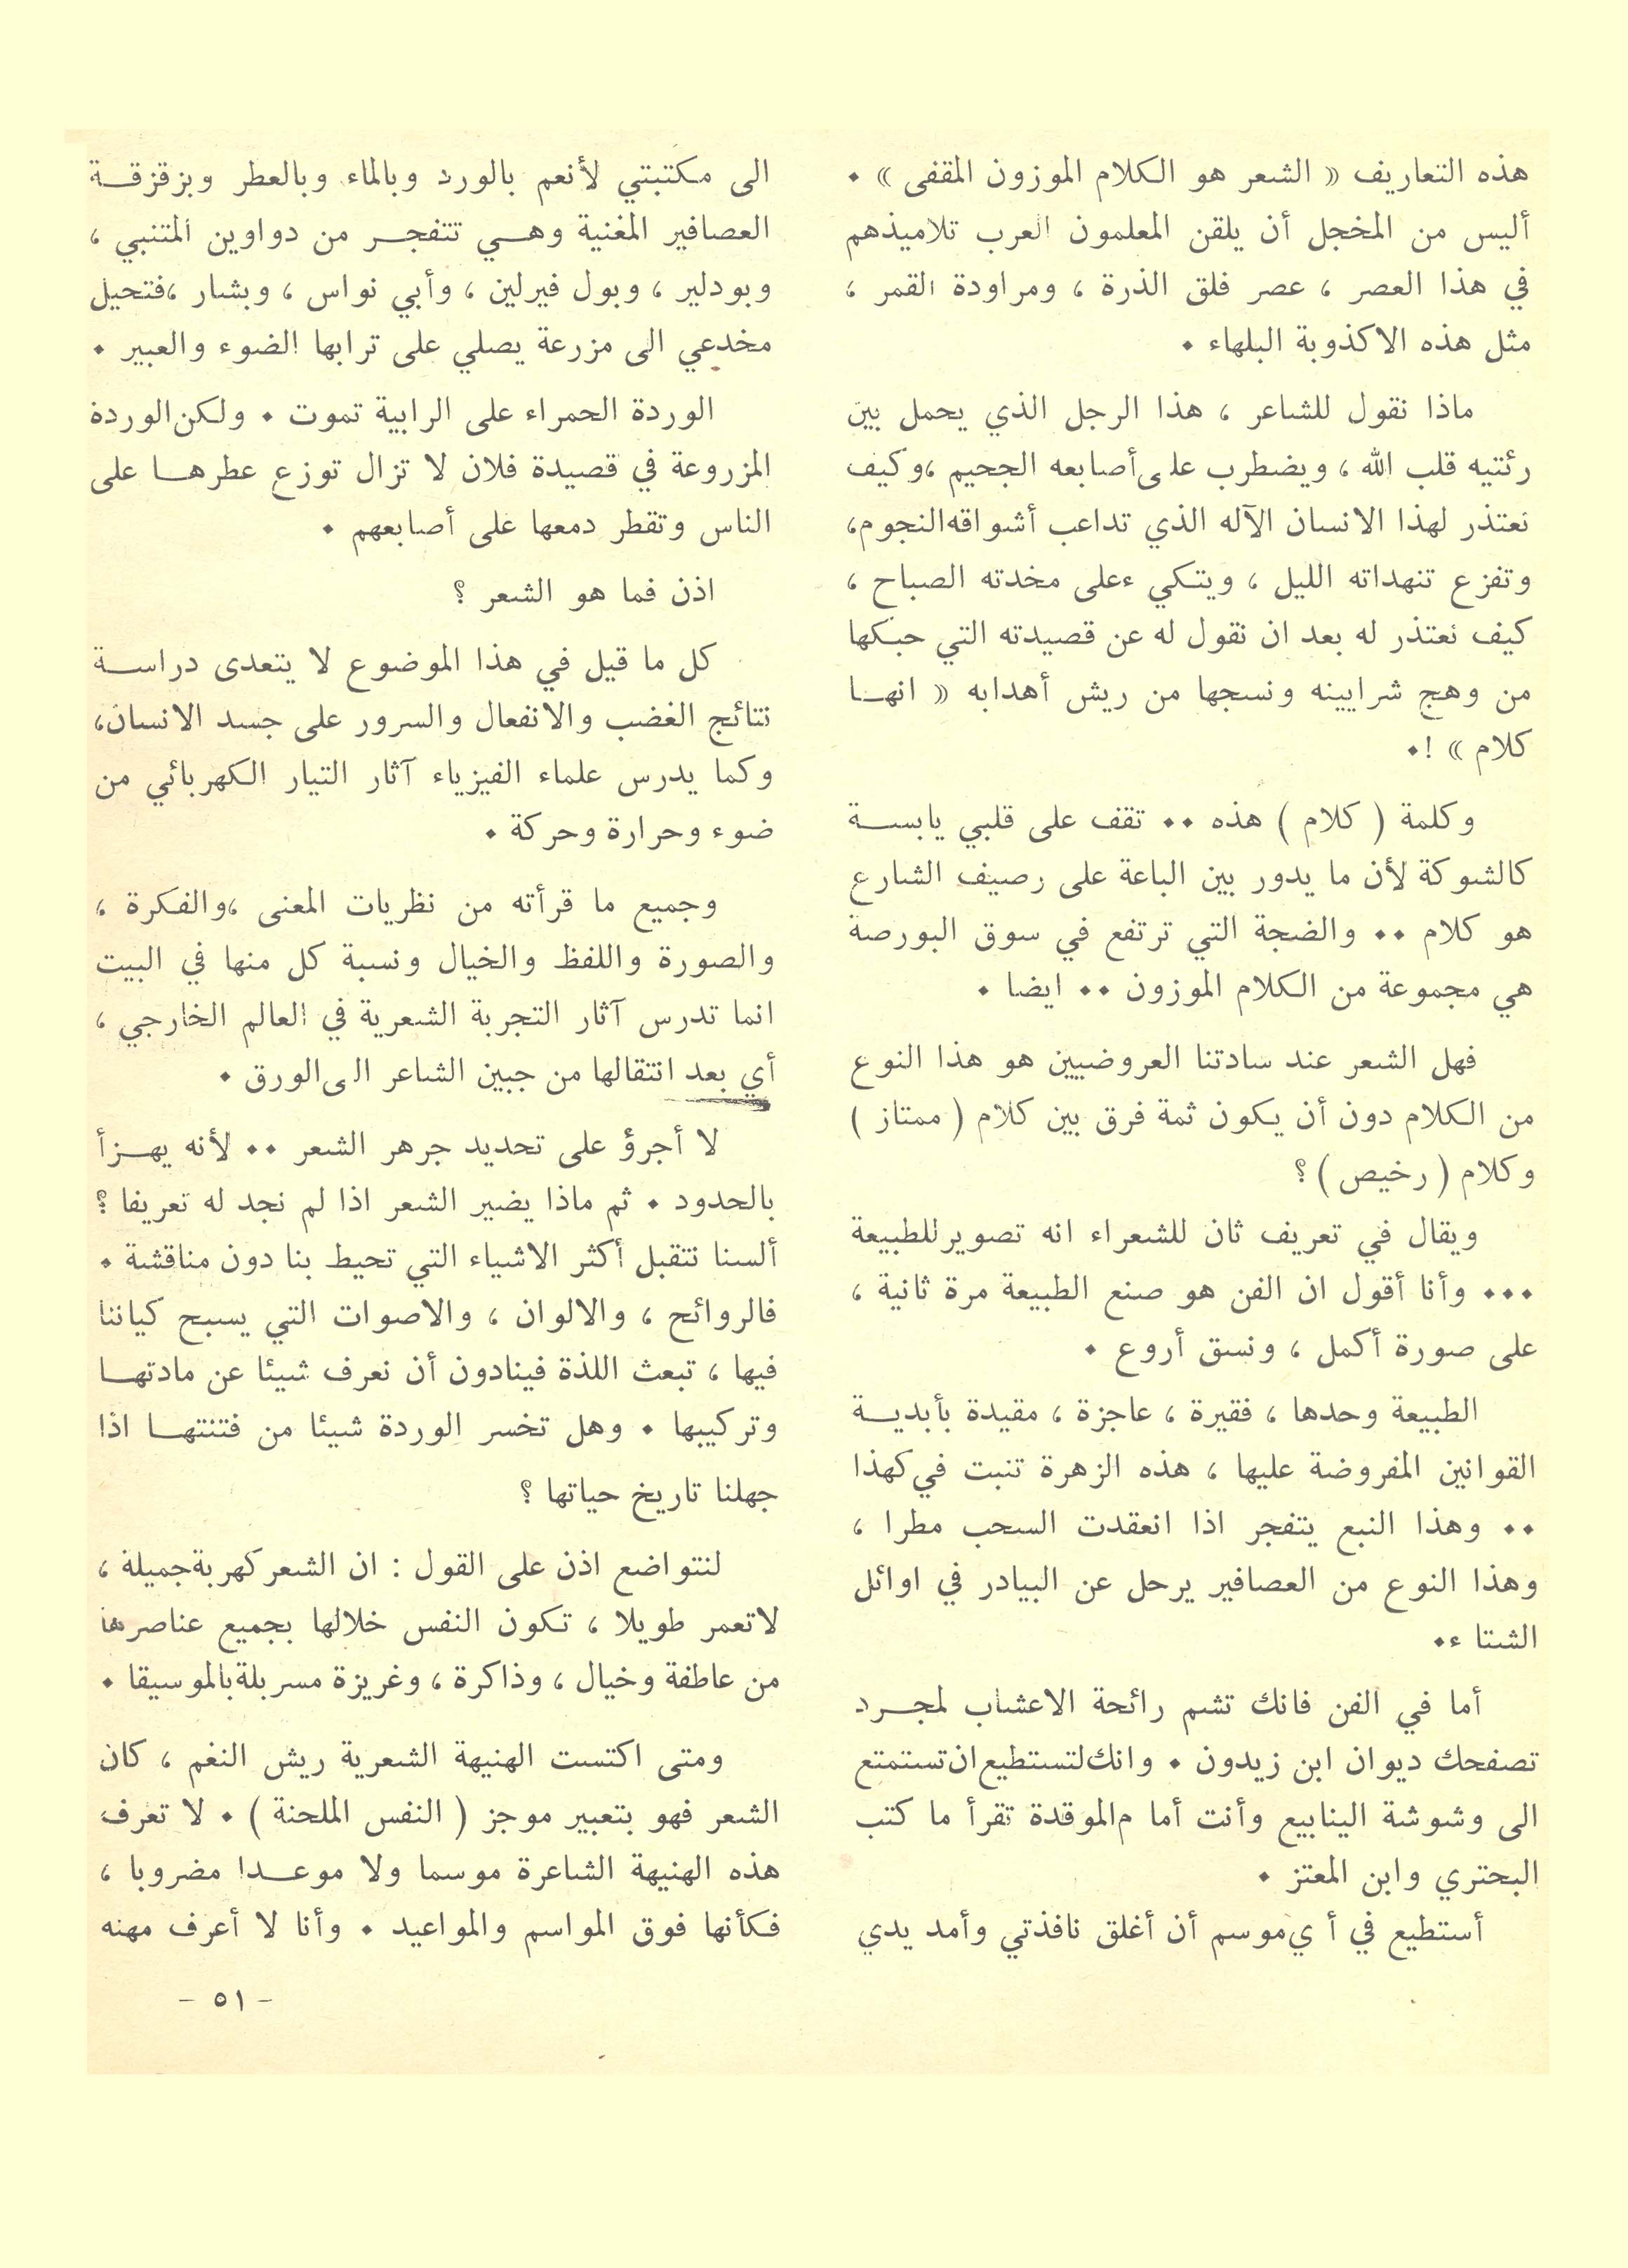 هذه التعاريف « الشعر هو الكلام الموزون المقفى » .
أليس من المخجل أن يلقن المعلمون العرب تلاميذهم
في هذا العصر ، عصر فلق الذرة ، ومراودة القمر ،
مثل هذه الاكذوبة البلهاء .
ماذا نقول للشاعر ، هذا الرجل الذي يحمل بين
رئتيه قلب الله ، ويضطرب على أصابعه الجحيم ،وكيف
نعتذر لهذا الانسان الآله الذي تداعب أشواقه النجوم،
وتفزع تنهداته الليل ، ويتكي ءعلى مخدته الصباح ،
كيف نعتذر له بعد ان نقول له عن قصيدته التي حبكها
من وهج شرايينه ونسجها من ريش أهدابه « انهــا
كلام » !.
وكلمة ( كلام ) هذه .. تقف على قلبي يابســة
كالشوكة لأن ما يدور بين الباعة على رصيف الشارع
هو كلام .. والضجة التي ترتفع في سوق البورصة
هي مجموعة من الكلام الموزون .. ايضا .
فهل الشعر عند سادتنا العروضيين هو هذا النوع
من الكلام دون أن يكون ثمة فرق بين كلام ( ممتاز )
وكلام ( رخيص ) ؟
ويقال في تعريف ثان للشعراء انه تصوير للطبيعة
... وأنا أقول ان الفن هو صنع الطبيعة مرة ثانية ،
على صورة أكمل ، ونسق أروع .
الطبيعة وحدها ، فقيرة ، عاجزة ، مقيدة بأبديــة
القوانين المفروضة عليها ، هذه الزهرة تنبت في كهذا
.. وهذا النبع يتفجر اذا انعقدت السحب مطرا ،
وهذا النوع من العصافير يرحل عن البيادر في اوائل
الشتا ء.
أما في الفن فانك تشم رائحة الاعشاب لمجــرد
تصفحك ديوان ابن زيدون . وانك لتستطيع ان تستمتع
الى وشوشة الينابيع وأنت أما م الموقدة تقرأ ما كتب
البحتري وابن المعتز .
أستطيع في أ ي موسم أن أغلق نافذتي وأمد يدي
الى مكتبتي لأنعم بالورد وبالماء وبالعطر وبزقزقــة
العصافير المغنية وهــي تتفجــر من دواوين المتنبي ،
وبودلير ، وبول فيرلين ، وأبي نواس ، وبشار ،فتحيل
مخدعي الى مزرعة يصلي على ترابها الضوء والعبير .
الوردة الحمراء على الرابية تموت . ولكن الوردة
المزروعة في قصيدة فلان لا تزال توزع عطرهــا على
الناس وتقطر دمعها على أصابعهم .
اذن فما هو الشعر ؟
كل ما قيل في هذا الموضوع لا يتعدى دراســة
نتائج الغضب والانفعال والسرور على جسد الانسان،
وكما يدرس علماء الفيزياء آثار التيار الكهربائي من
ضوء وحرارة وحركة .
وجميع ما قرأته من نظريات المعنى ،والفكرة ،
والصورة واللفظ والخيال ونسبة كل منها في البيت
انما تدرس آثار التجربة الشعرية في العالم الخارجي ،
أي بعد انتقالها من جبين الشاعر الى الورق .
لا أجرؤ على تحديد جرهر الشعر .. لأنه يهــزأ
بالحدود . ثم ماذا يضير الشعر اذا لم نجد له تعريفا ؟
ألسنا نتقبل أكثر الاشياء التي تحيط بنا دون مناقشة .
فالروائح ، والالوان ، والاصوات التي يسبح كياننا
فيها ، تبعث اللذة فينادون أن نعرف شيئا عن مادتهــا
وتركيبها . وهل تخسر الوردة شيئا من فتنتهــا اذا
جهلنا تاريخ حياتها ؟
لنتواضع اذن على القول : ان الشعر كهربة جميلة ،
لاتعمر طويلا ، تكون النفس خلالها بجميع عناصرها
من عاطفة وخيال ، وذاكرة ، وغريزة مسربلة بالموسيقا .
ومتى اكتست الهنيهة الشعرية ريش النغم ، كان
الشعر فهو بتعبير موجز ( النفس الملحنة ) . لا تعرف
هذه الهنيهة الشاعرة موسما ولا موعــدا مضروبا ،
فكأنها فوق المواسم والمواعيد . وأنا لا أعرف مهنه
- ٥١ -